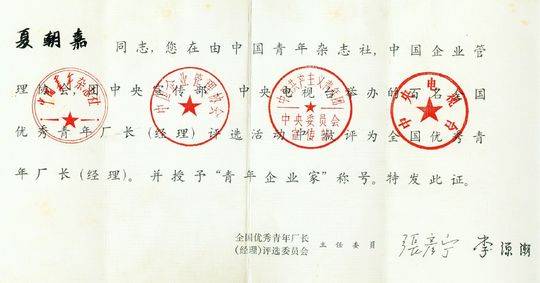 夏朝嘉 同志,您在由中国青年杂志社,中国企业管
理协会,团中央宣传部,中央电视台举办的百名全国
优秀青年厂长(经理)评选活动中,被评为全国优秀青
年厂长(经理)。并授予“青年企业家”称号。特发此证。
中国青年杂志社
中国企业管理协会
中国共产主义青年团
中央委员会
宣传部
中央电视台
全国优秀青年厂长
(经理)评选委员会
主任委员 張彦宁 李源潮